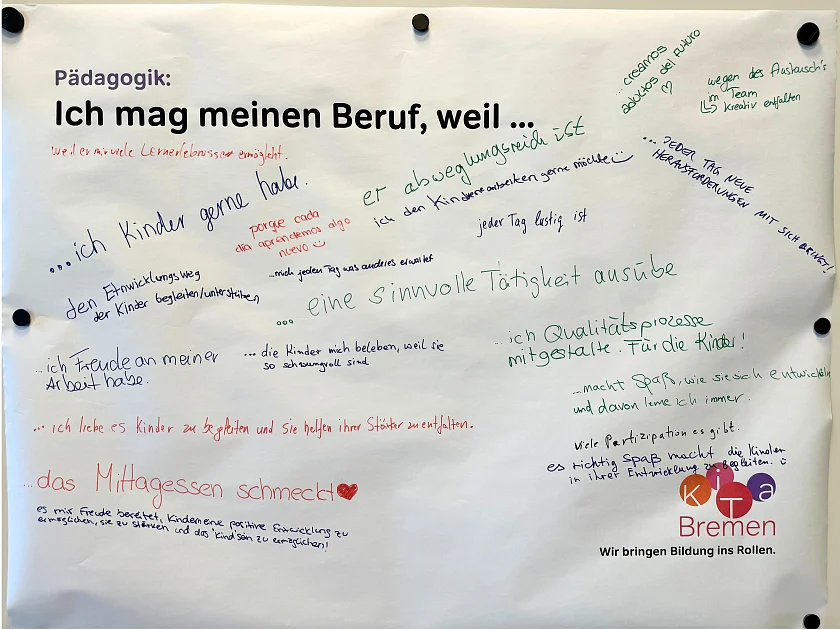 Pädagogik:
Ich mag meinen Beruf, weil ...
weil er mir viele Lernerlebnisse ermöglicht.
...creamos
adultos del futuro
wegen des Austausch's
im Team
kreativ entfalten
er abweglungsreich ist
... JEDER TAG NEUE
HERAUSFORDERUNGEN MIT SICH BRINGT!
...ich Kinder gerne habe.
porque cada
dia aprendemos algo
nuevo
ich den Kindern
gerne möchte
jeder Tag lustig ist
...mich jeden Tag was anderes erwartet
den Entwicklungsweg
der Kinder begleiten/unterstützen
... eine sinnvolle Tätigkeit ausübe
...ich Freude an meiner
Arbeit habe.
... die Kinder mich beleben, weil sie
so schwungvoll sind
...ich Qualitätsprozesse
mitgestalte. Für die Kinder!
...macht Spaß, wie sie sich entwickeln
und davon lerne ich immer.
... ich liebe es Kinder zu begleiten und sie helfen ihrer Stärken zu entfalten.
viele Partizipation es gibt.
es richtig Spaß macht die Kinder
in ihrer Entwicklung zu begleiten.
...das Mittagessen schmeckt
es mir Freude bereitet, Kindern eine positive Entwicklung zu
ermöglichen, sie zu stärken und das "Kind"sein zu ermöglichen!
KiTa
Bremen
Wir bringen Bildung ins Rollen.